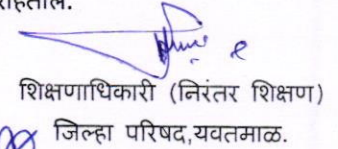 शिक्षणाधिकारी (निरंतर शिक्षण)
जिल्हा परिषद,यवतमाळ.